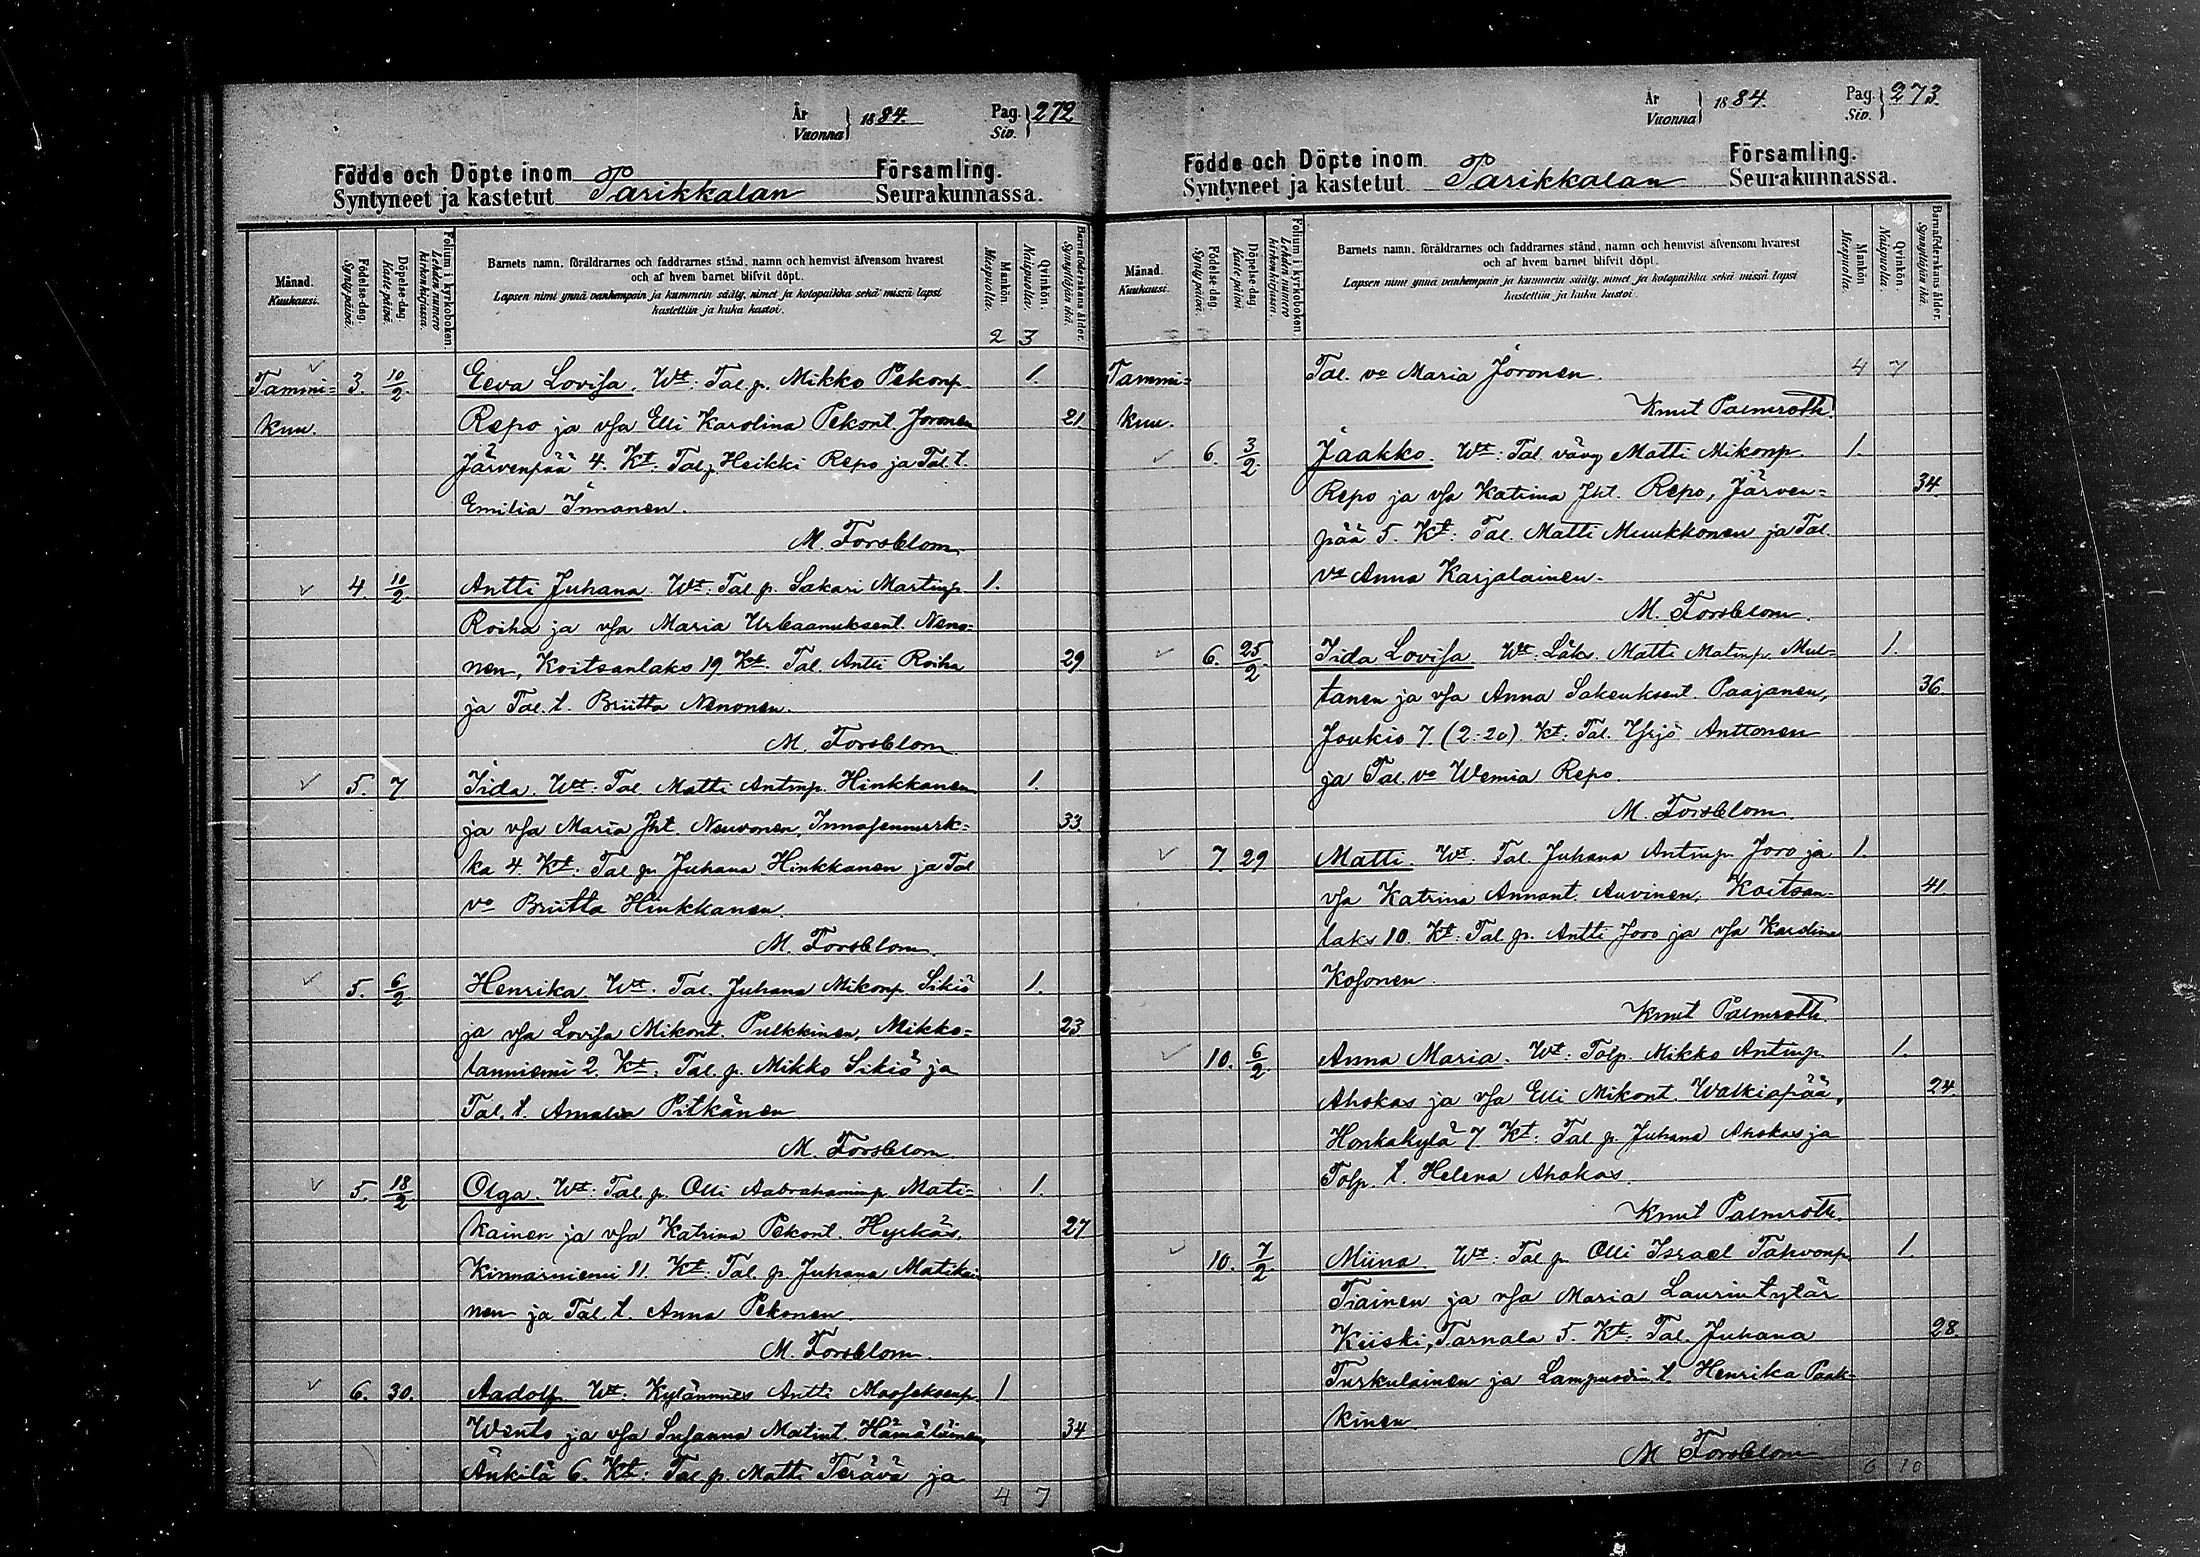 År
Vuonna } 1884. Pag. Siv. } 272
Födde och Döpte inom Församling.
Syntyneet ja kastetut Parikkalan Seurakunnassa.
Månad. Kuukausi.
Födelse-dag. Syntypäivä.
Döpelse-dag. Kastepäivä.
Folium i kyrkoboken. Lehden numero kirkonkirjassa.
Barnets namn, föräldrarnes och faddrarnes stånd, namn och hemvist äfvensom hvarest
och af hvem barnet blifvit döpt.
Lapsen nimi ynnä vanhempain ja kummein sääty, nimet ja kotopaikka sekä missä lapsi
kastettiin ja kuka kastoi.
Mankön. Miespuolta.
Qvinkön. Naispuolta.
Barnaföderskans ålder. Synnyttäjän ikä.
2 3
Tammi= 3. 10/2 Eeva Lovisa. Wt: Tal. p. Mikko Pekonp. 1.
kuu. Repo ja vsa Elli Karolina Pekont. Joronen 21
Järvenpää 4. Kt. Tal. p. Heikki Repo ja Tal. t.
Emilia Innanen.
M. Forsblom.
4. 10/2 Antti Juhana. Wt: Tal. p. Sakari Martinp. 1.
Roiha ja vsa Maria Urbaanuksent. Neno-
nen, Koitsanlaks 19 Kt. Tal. Antti Roiha 29
ja Tal. t. Briitta Nenonen.
M. Forsblom.
5. 7 Iida. Wt: Tal. Matti Antinp. Hinkkanen 1.
ja vsa Maria Jht. Neuvonen, Innasennurk= 33
ka 4. Kt: Tal. p. Juhana Hinkkanen ja Tal
vo Briitta Hinkkanen.
M. Forsblom.
5. 6/2 Henrika. Wt. Tal. Juhana Mikonp. Sikiö 1.
ja vsa Lovisa Mikont. Pulkkinen, Mikko= 23
lanniemi 2. Kt: Tal. p. Mikko Sikiö ja
Tal. t. Amalia Pitkänen
M. Forsblom.
5. 18/2 Olga. Wt: Tal. p. Olli Aabrahaminp. Mati= 1.
kainen ja vsa Katrina Pekont. Hyrkäs, 27
Kinnarniemi 11. Kt: Tal. p. Juhana Matikai
nen ja Tal. t. Anna Pekonen.
M. Forsblom.
6. 30. Aadolf. Wt: Kylänmies Antti Mooseksenp. 1
Wento ja vsa Susanna Matint. Hämäläinen, 34
Änkilä 6. Kt: Tal. p. Matti Terävä ja
4 7
År
Vuonna } 1884. Pag. Siv. } 273.
Födde och Döpte inom Församling.
Syntyneet ja kastetut Parikkalan Seurakunnassa.
Månad. Kuukausi.
Födelse-dag. Syntypäivä.
Döpelse-dag. Kastepäivä.
Folium i kyrkoboken. Lehden numero kirkonkirjassa.
Barnets namn, föräldrarnes och faddrarnes stånd, namn och hemvist äfvensom hvarest
och af hvem barnet blifvit döpt.
Lapsen nimi ynnä vanhempain ja kummein sääty, nimet ja kotopaikka sekä missä lapsi
kastettiin ja kuka kastoi.
Mankön. Miespuolta.
Qvinkön. Naispuolta.
Barnaföderskans ålder. Synnyttäjän ikä.
Tammi= Tal. vo Maria Joronen. 4 7
kuu. Knut Palmroth.
6. 3/2 Jaakko. Wt: Tal. vävy Matti Mikonp. 1.
Repo ja vsa Katrina Jht. Repo, Järven= 34.
pää 5. Kt: Tal. Matti Muukkonen ja Tal.
vo Anna Karjalainen.
M. Forsblom.
6. 25/2 Iida Lovisa Wt: Läks. Matti Matinp. Mul= 1.
tanen ja vsa Anna Sakeuksent. Paajanen, 36.
Joukio 7. (2:20). Kt: Tal. Yrjö Anttonen
ja Tal. vo Wemia Repo.
M. Forsblom.
7. 29 Matti. Wt. Tal. Juhana Antinp. Joro ja 1.
vsa Katrina Annant. Auvinen, Koitsan- 41
laks 10. Kt: Tal. p. Antti Joro ja vsa Karolina
Kosonen.
Knut Palmroth.
10. 6/2 Anna Maria. Wt: Tolp. Mikko Antinp. 1.
Ahokas ja vsa Elli Mikont. Walkiapää, 24.
Honkakylä 7 Kt: Tal. p. Juhana Ahokas ja
Tolp. t. Helena Ahokas.
Knut Palmroth.
10. 7/2 Miina Wt: Tal. p. Olli Israel Tahvonp. 1.
Tiainen ja vsa Maria Laurintytär
Kiiski, Tarnala 5. Kt: Tal. Juhana 28
Turkulainen ja Lampuodin t. Henrika Paak=
kinen.
M Forsblom
6 10